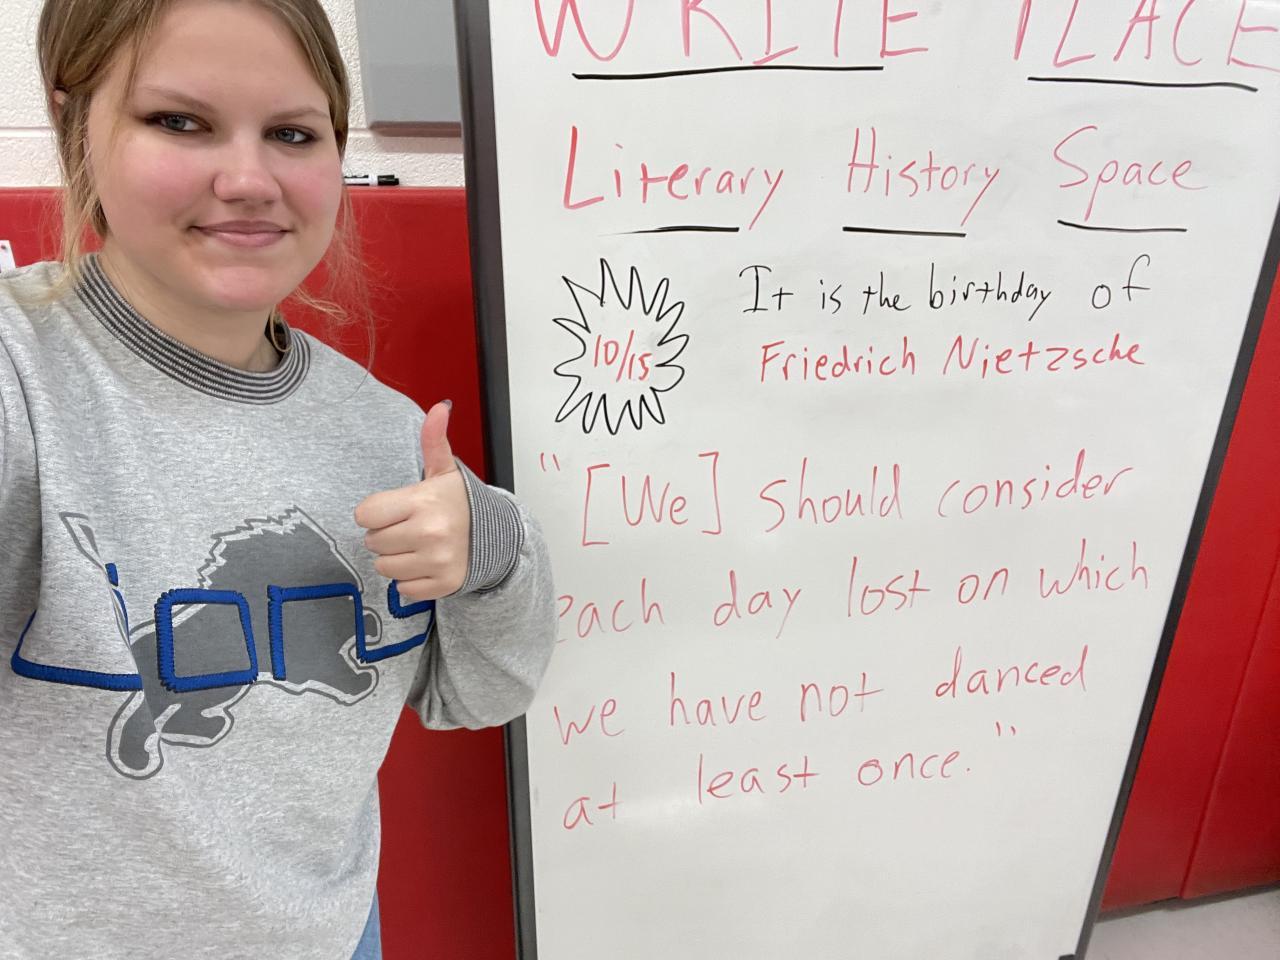 WRITE PLACE
Literary History Space
10/15
It is the birthday of
Friedrich Nietzsche
"[We] should consider
each day lost on which
we have not danced
at least once."
Lions